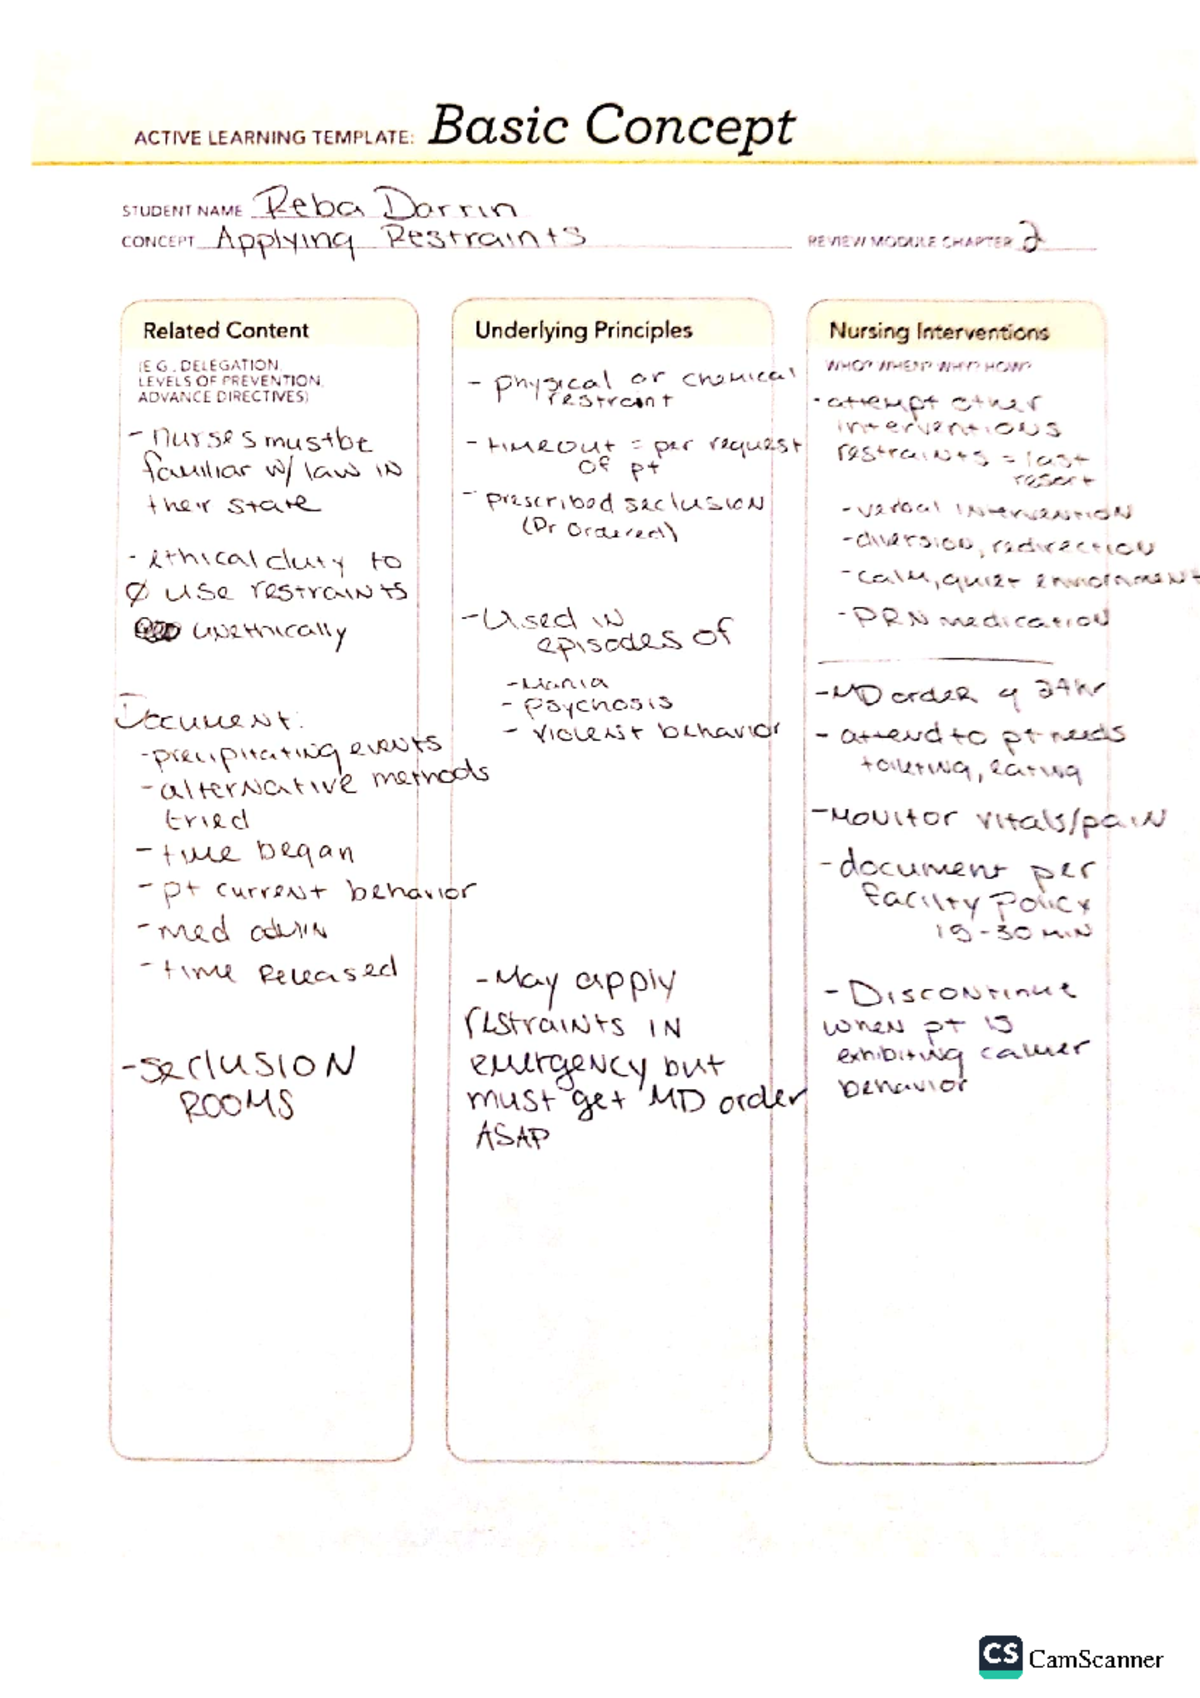 ACTIVE LEARNING TEMPLATE: Basic Concept
STUDENT NAME Reba Darrin
CONCEPT Applying Restraints
REVIEW MODULE CHAPTER 2
Related Content
(E.G., DELEGATION,
LEVELS OF PREVENTION,
ADVANCE DIRECTIVES)
- Nurses must be
familiar w/ law in
their state
- ethical duty to
Ø use restraints
unethically
Document:
- precipitating events
- alternative methods
tried
- time began
- pt current behavior
- med admin
- time Released
- seclusion
ROOMS
Underlying Principles
- physical or chemical
restraint
- timeout = per request
of pt
- prescribed seclusion
(Dr ordered)
- Used in
episodes of
- Mania
- psychosis
- violent behavior
- May apply
restraints in
emergency but
must get MD order
ASAP
Nursing Interventions
WHO? WHEN? WHY? HOW?
- attempt other
interventions
restraints = last
resort
- verbal intervention
- diversion, redirection
- calm, quiet enviornment
- PRN medication
- MD order q 24hr
- attend to pt needs
toileting, eating
- Monitor vitals/pain
- document per
facilty Policy
15-30 min
- Discontinue
when pt is
exhibiting calmer
behavior
CS CamScanner